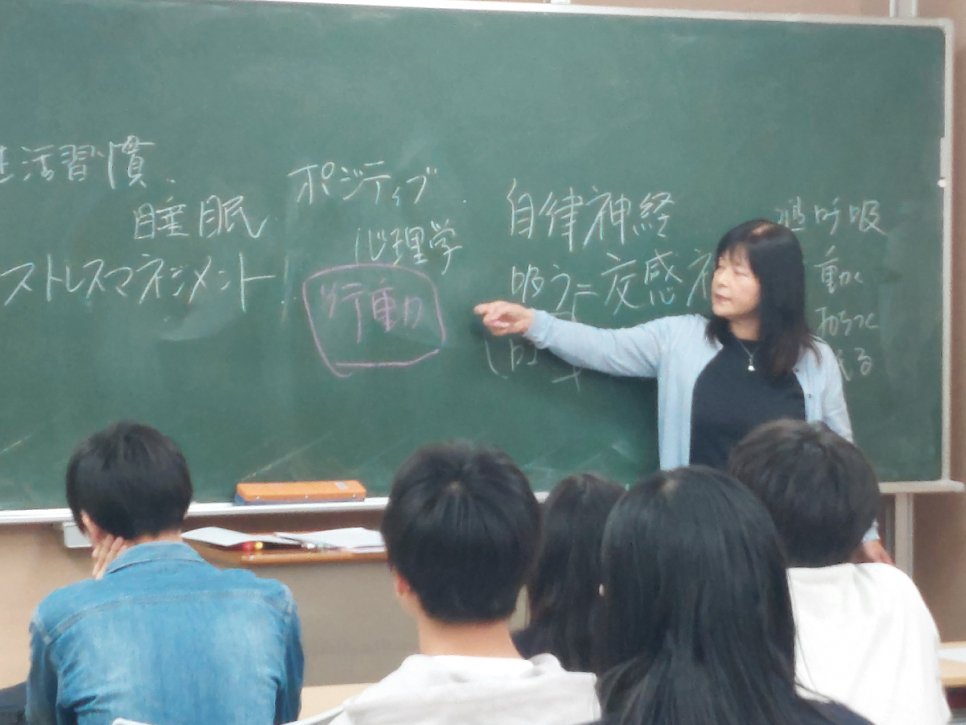 生活習慣
睡眠
ストレスマネジメント
ポジティブ
心理学
行動
自律神経
吸う＝交感神
過呼吸
動く
おちつく